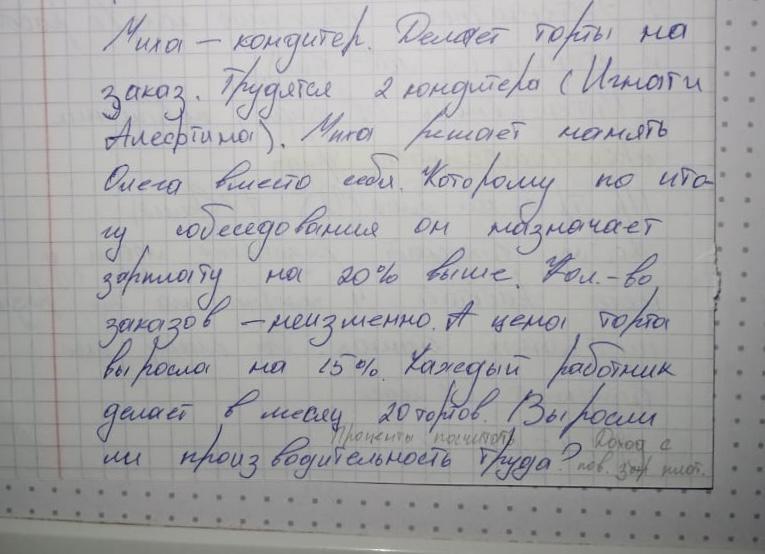 Миха – кондитер. Делает торты на
заказ. Трудятся 2 кондитера (Игнат и
Алефтина). Миха решает нанять
Олега вместо себя. Которому по ито-
гу собеседования он назначает
зарплату на 20% выше. Кол.-во
заказов – неизменно. А цена торта
выросла на 15%. Каждый работник
делает в месяц 20 тортов. Выросли
Проценты посчитать Доход с
ли производительность труда? пов. зар плат.